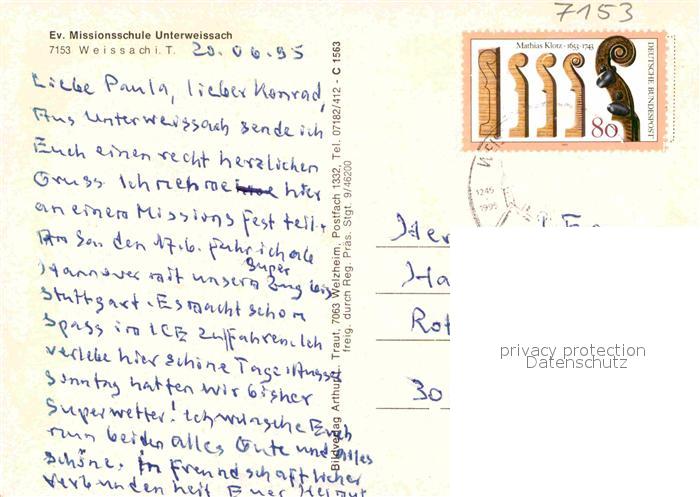 7153
Ev. Missionsschule Unterweissach
7153 Weissach i. T.
20.06.95
Liebe Paula, lieber Konrad,
Aus Unterweissach sende ich
Euch einen recht herzlichen
Gruss. Ich nehme hier
an einem Missionsfest teil.
Am Son den 17.6. fuhr ich ab
Hannover mit unserm Super Zug bis
Stuttgart. Es macht schon
Spass im ICE zu fahren. Ich
verlebe hier schöne Tage. Ausser
Sonntag hatten wir bisher
Superwetter! Ich wünsche Euch
nun beiden alles Gute und alles
schöne. In freundschaftlicher
Verbundenheit Euer Helmut
Bildverlag Arthur Traut, 7063 Welzheim, Postfach 1332, Tel. 07182/412 - C 1563
freig. durch Reg. Präs. Stgt. 9/46200
Mathias Klotz · 1653-1743
DEUTSCHE BUNDESPOST
80
1245
1995
Her
Ha
Rot
30
privacy protection
Datenschutz